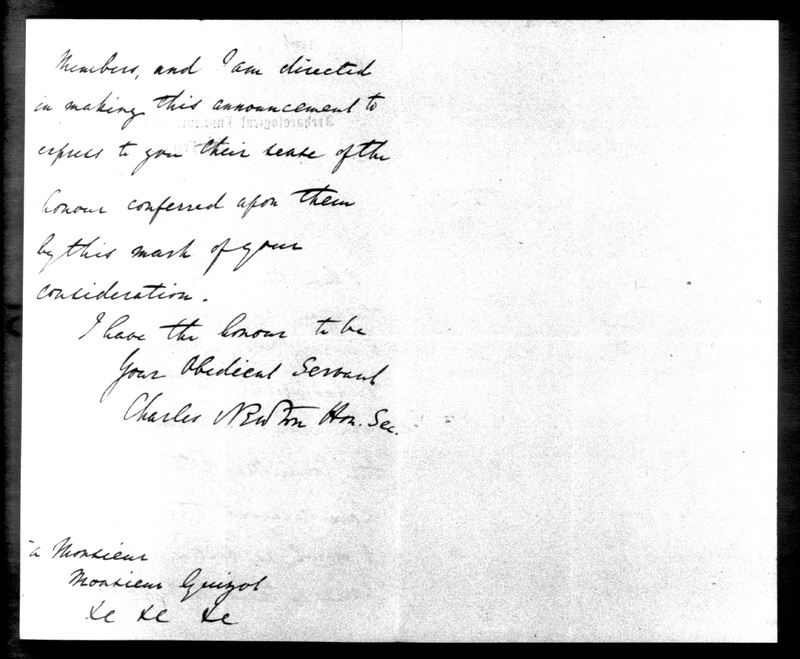 Members, and I am directed
in making this announcement to
express to you their sense of the
honour conferred upon them
by this mark of your
consideration.
I have the honour to be
Your Obedient Servant
Charles Newton Hon. Sec.
a Monsieur
Monsieur Guizot
&c &c &c